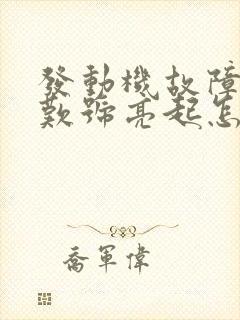 發動機故障
歎號亮起怎
喬軍偉